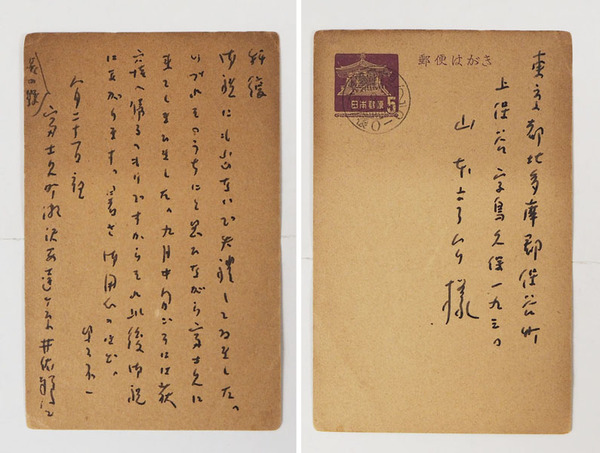 拝復
御祝にも出ないで失礼してゐました。
いづれそのうちにと思ひながら富士見に
来てしまひました。九月中旬ごろには荻
窪へ帰るつもりですからそれ以後御祝
に上がります。暑さ御用心のほど。
八月二十
富士見町 井伏鱒二
郵便はがき
日本郵便
5
東京都北多摩郡保谷町
上保谷字鳥久保一九三
山本 様